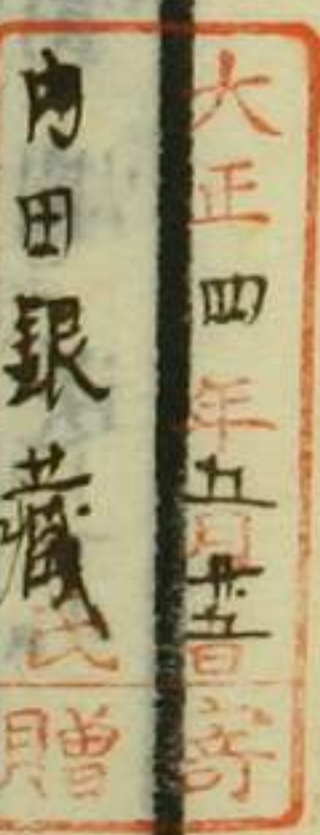 大正四年五月廿五日寄
内田銀藏氏贈